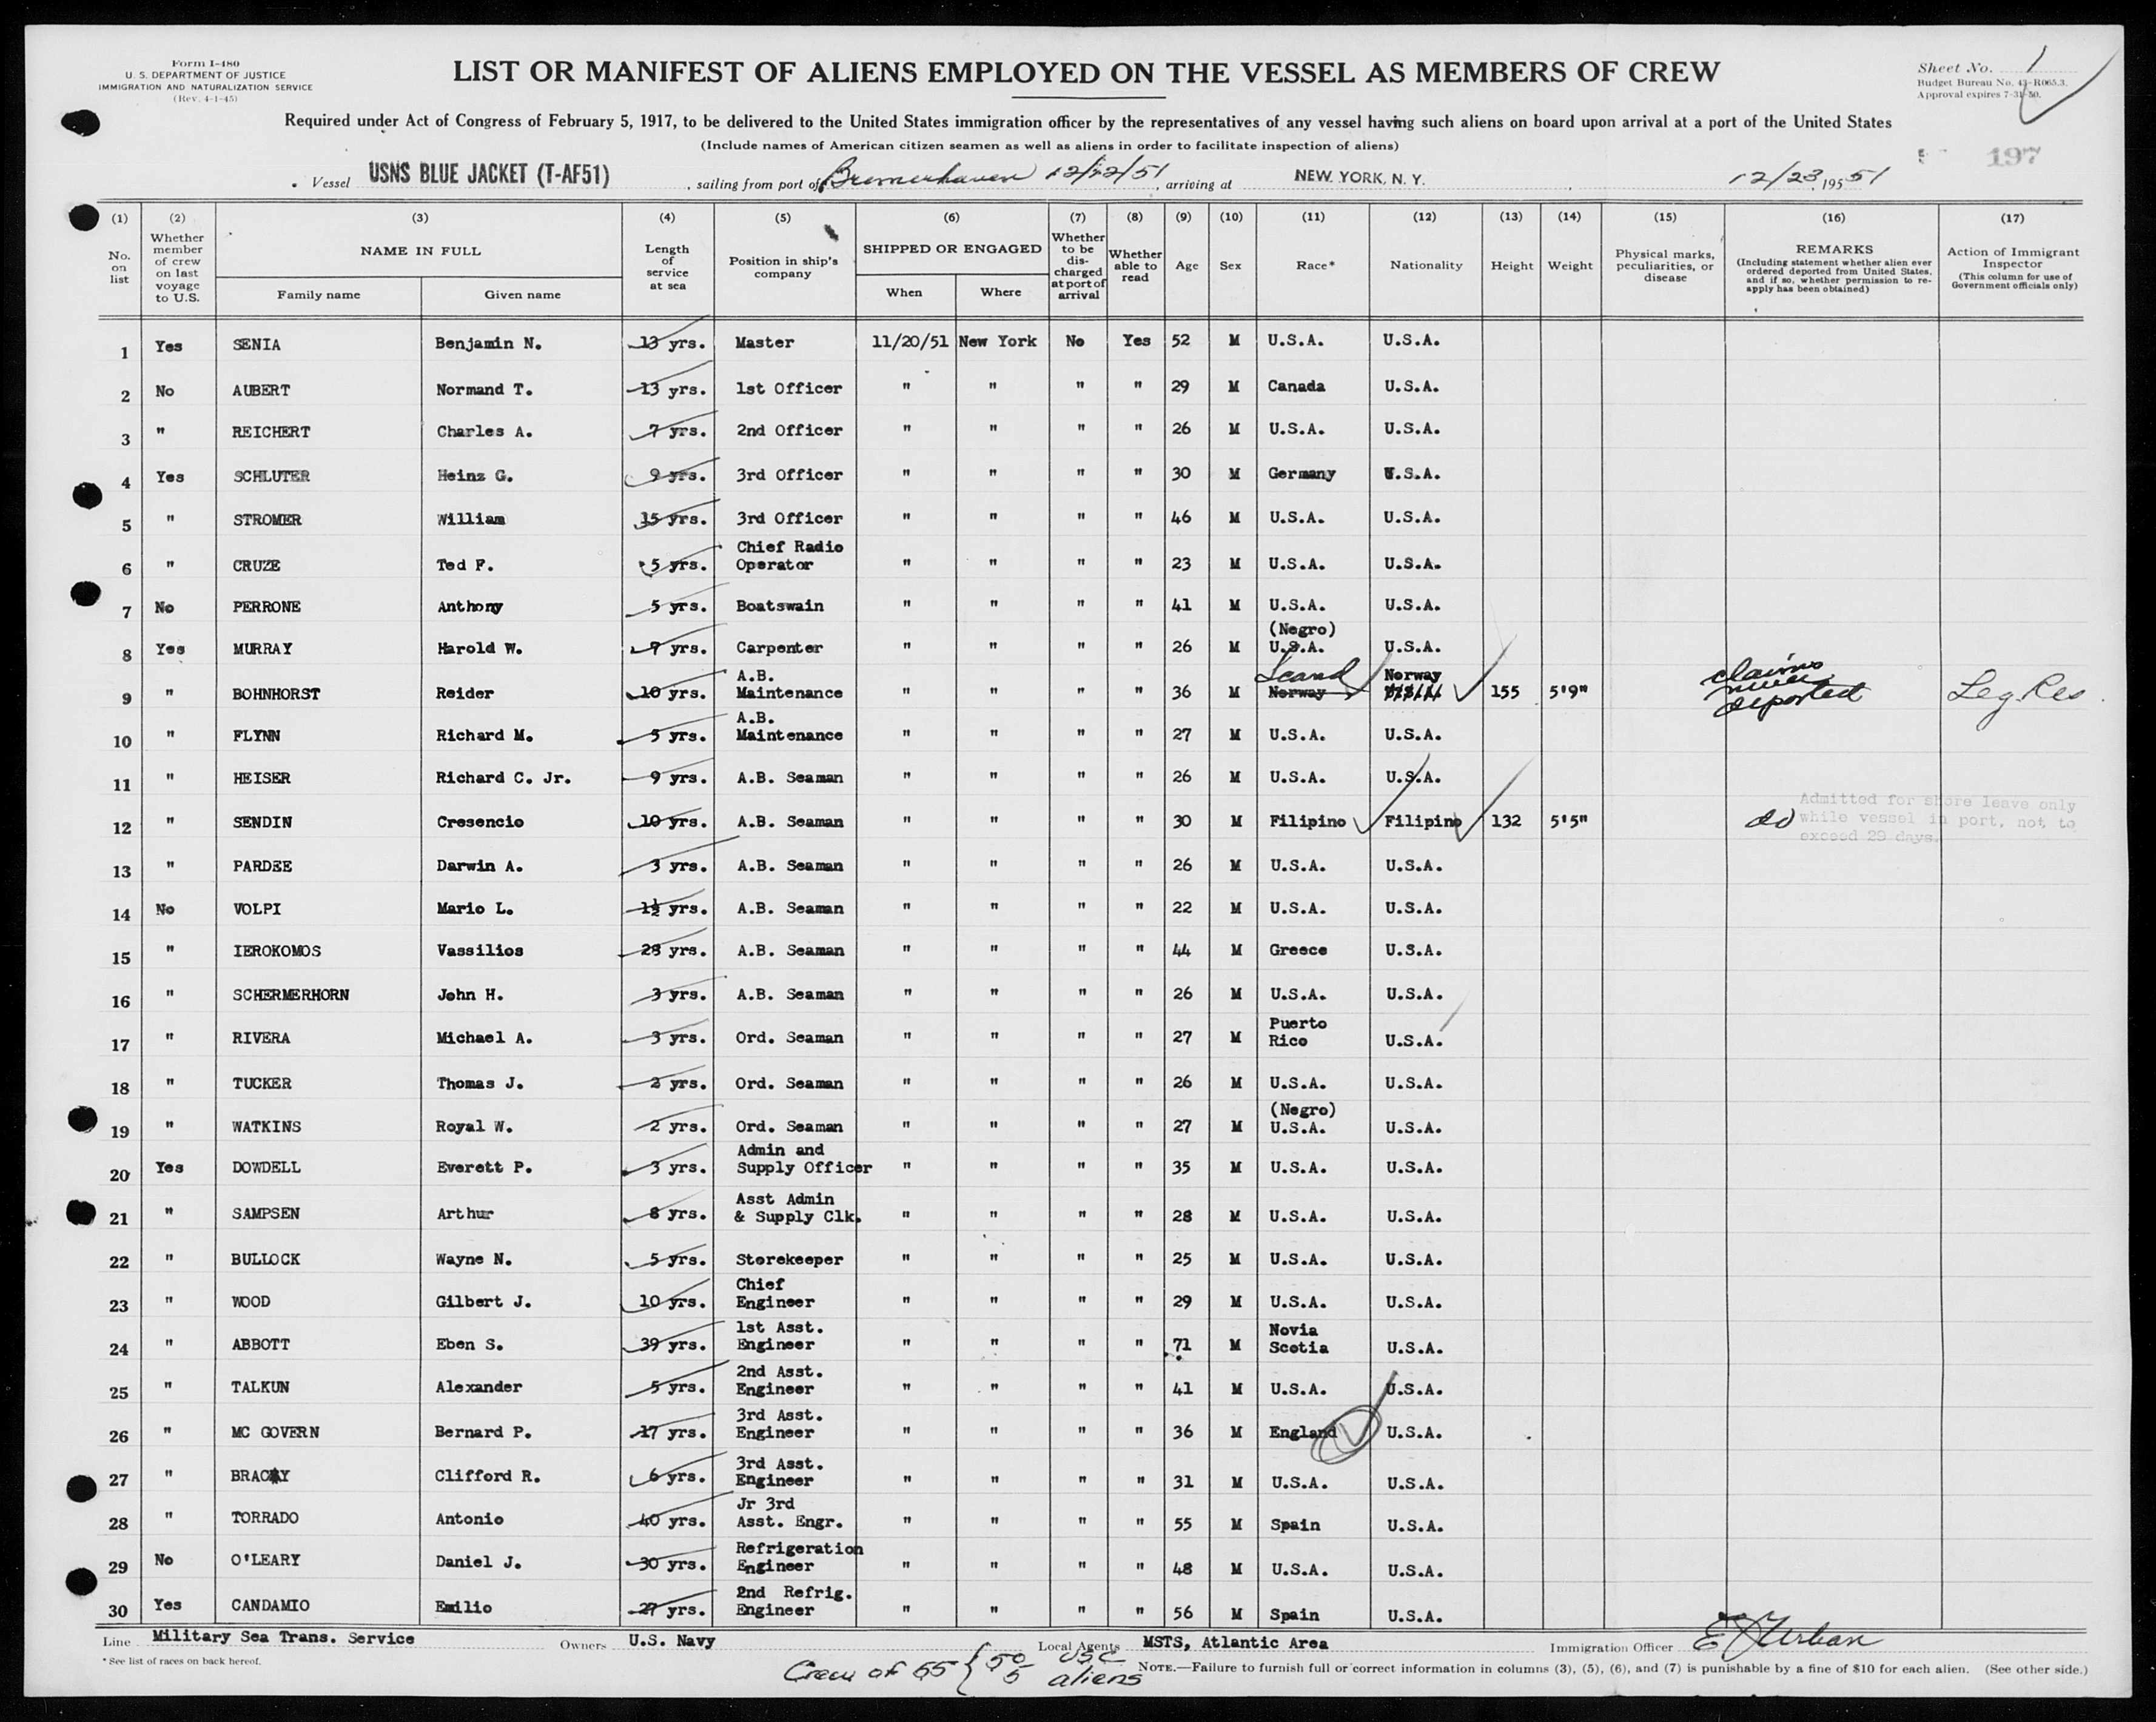 Form I-480
U. S. DEPARTMENT OF JUSTICE
IMMIGRATION AND NATURALIZATION SERVICE
(Rev. 4-1-45)
LIST OR MANIFEST OF ALIENS EMPLOYED ON THE VESSEL AS MEMBERS OF CREW
Sheet No. 1
Budget Bureau No. 43-R065.3.
Approval expires 7-31-50.
Required under Act of Congress of February 5, 1917, to be delivered to the United States immigration officer by the representatives of any vessel having such aliens on board upon arrival at a port of the United States
(Include names of American citizen seamen as well as aliens in order to facilitate inspection of aliens)
197
Vessel USNS BLUE JACKET (T-AF51), sailing from port of Bremerhaven 12/12/51, arriving at NEW YORK, N. Y. 12/23, 1951
(1) (2) (3) (4) (5) (6) (7) (8) (9) (10) (11) (12) (13) (14) (15) (16) (17)
No. on list
Whether member of crew on last voyage to U.S.
NAME IN FULL
Family name
Given name
Length of service at sea
Position in ship's company
SHIPPED OR ENGAGED
When
Where
Whether to be discharged at port of arrival
Whether able to read
Age
Sex
Race*
Nationality
Height
Weight
Physical marks, peculiarities, or disease
REMARKS
(Including statement whether alien ever ordered deported from United States, and if so, whether permission to re-apply has been obtained)
Action of Immigrant Inspector
(This column for use of Government officials only)
1 Yes SENIA Benjamin N. 13 yrs. Master 11/20/51 New York No Yes 52 M U.S.A. U.S.A.
2 No AUBERT Normand T. 13 yrs. 1st Officer " " " " 29 M Canada U.S.A.
3 " REICHERT Charles A. 7 yrs. 2nd Officer " " " " 26 M U.S.A. U.S.A.
4 Yes SCHLUTER Heinz G. 9 yrs. 3rd Officer " " " " 30 M Germany U.S.A.
5 " STROMER William 15 yrs. 3rd Officer " " " " 46 M U.S.A. U.S.A.
6 " CRUZE Ted F. 5 yrs. Chief Radio Operator " " " " 23 M U.S.A. U.S.A.
7 No PERRONE Anthony 5 yrs. Boatswain " " " " 41 M U.S.A. U.S.A.
8 Yes MURRAY Harold W. 7 yrs. Carpenter " " " " 26 M (Negro) U.S.A. U.S.A.
9 " BOHNHORST Reider 10 yrs. A.B. Maintenance " " " " 36 M Scand Norway Norway 155 5'9" claims never deported Leg. Res.
10 " FLYNN Richard M. 5 yrs. A.B. Maintenance " " " " 27 M U.S.A. U.S.A.
11 " HEISER Richard C. Jr. 9 yrs. A.B. Seaman " " " " 26 M U.S.A. U.S.A.
12 " SENDIN Cresencio 10 yrs. A.B. Seaman " " " " 30 M Filipino Filipino 132 5'5" do Admitted for shore leave only while vessel in port, not to exceed 29 days.
13 " PARDEE Darwin A. 3 yrs. A.B. Seaman " " " " 26 M U.S.A. U.S.A.
14 No VOLPI Mario L. 1½ yrs. A.B. Seaman " " " " 22 M U.S.A. U.S.A.
15 " IEROKOMOS Vassilios 28 yrs. A.B. Seaman " " " " 44 M Greece U.S.A.
16 " SCHERMERHORN John H. 3 yrs. A.B. Seaman " " " " 26 M U.S.A. U.S.A.
17 " RIVERA Michael A. 3 yrs. Ord. Seaman " " " " 27 M Puerto Rico U.S.A.
18 " TUCKER Thomas J. 2 yrs. Ord. Seaman " " " " 26 M U.S.A. U.S.A.
19 " WATKINS Royal W. 2 yrs. Ord. Seaman " " " " 27 M (Negro) U.S.A. U.S.A.
20 Yes DOWDELL Everett P. 3 yrs. Admin and Supply Officer " " " " 35 M U.S.A. U.S.A.
21 " SAMPSEN Arthur 8 yrs. Asst Admin & Supply Clk. " " " " 28 M U.S.A. U.S.A.
22 " BULLOCK Wayne N. 5 yrs. Storekeeper " " " " 25 M U.S.A. U.S.A.
23 " WOOD Gilbert J. 10 yrs. Chief Engineer " " " " 29 M U.S.A. U.S.A.
24 " ABBOTT Eben S. 39 yrs. 1st Asst. Engineer " " " " 71 M Novia Scotia U.S.A.
25 " TALKUN Alexander 5 yrs. 2nd Asst. Engineer " " " " 41 M U.S.A. U.S.A.
26 " MC GOVERN Bernard P. 17 yrs. 3rd Asst. Engineer " " " " 36 M England U.S.A.
27 " Clifford R. 6 yrs. 3rd Asst. Engineer " " " " 31 M U.S.A. U.S.A.
28 " TORRADO Antonio 40 yrs. Jr 3rd Asst. Engr. " " " " 55 M Spain U.S.A.
29 No O'LEARY Daniel J. 30 yrs. Refrigeration Engineer " " " " 48 M U.S.A. U.S.A.
30 Yes CANDAMIO Emilio 27 yrs. 2nd Refrig. Engineer " " " " 56 M Spain U.S.A.
Line Military Sea Trans. Service Owners U.S. Navy Local Agents MSTS, Atlantic Area Immigration Officer E J Urban
*See list of races on back hereof.
Crew of 55 { 50 USC
5 aliens
NOTE.—Failure to furnish full or correct information in columns (3), (5), (6), and (7) is punishable by a fine of $10 for each alien. (See other side.)